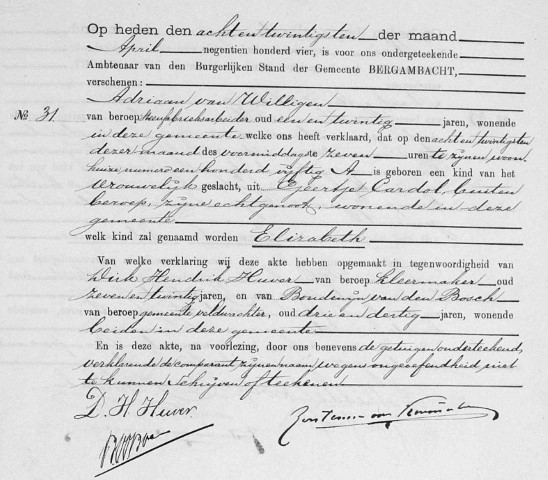 Op heden den achtentwintigsten der maand
April negentien honderd vier, is voor ons ondergeteekende
Ambtenaar van den Burgerlijken Stand der Gemeente BERGAMBACHT,
verschenen:
Adriaan van Willigen
No 31.
van beroep fabrieksarbeider oud een en twintig jaren, wonende
in deze gemeente welke ons heeft verklaard, dat op den achtentwintigsten
dezer maand des voormiddags te zeven uren te zijnen woon-
huize nummer een honderd vijftig A is geboren een kind van het
vrouwelijk geslacht, uit Geertje Cardol, buiten
beroep, zijne echtgenoot, wonende in deze
gemeente
welk kind zal genaamd worden Elizabeth
Van welke verklaring wij deze akte hebben opgemaakt in tegenwoordigheid van
Dirk Hendrik Huver van beroep kleermaker oud
zeven en twintig jaren, en van Boudewijn van den Bosch
van beroep gemeente veldwachter, oud drie en dertig jaren, wonende
beiden in deze gemeente
En is deze akte, na voorlezing, door ons benevens de getuigen onderteekend,
verklarende de comparant zijnen naam wegens ongeoefendheid niet
te kunnen schrijven of teekenen
D. H. Huver.